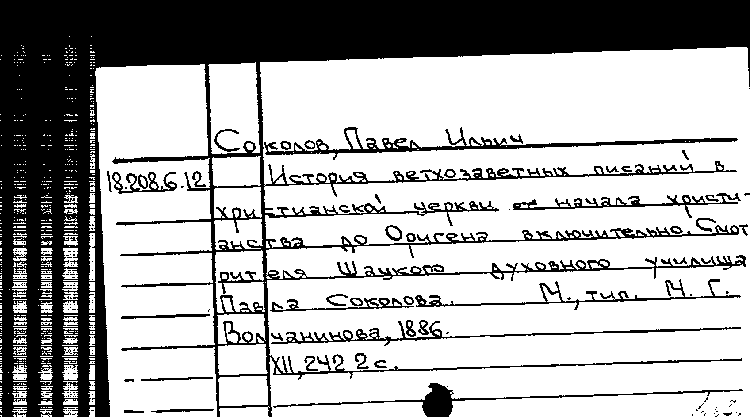 Соколов, Павел Ильич
18.208.6.12 История ветхозаветных писаний в
христианской церкви от начала христи-
анства до Оригена включительно. Смот
рителя Шацкого духовного училища
Павла Соколова. М., тип. М. Г.
Волчанинова, 1886.
XII, 242, 2 с.